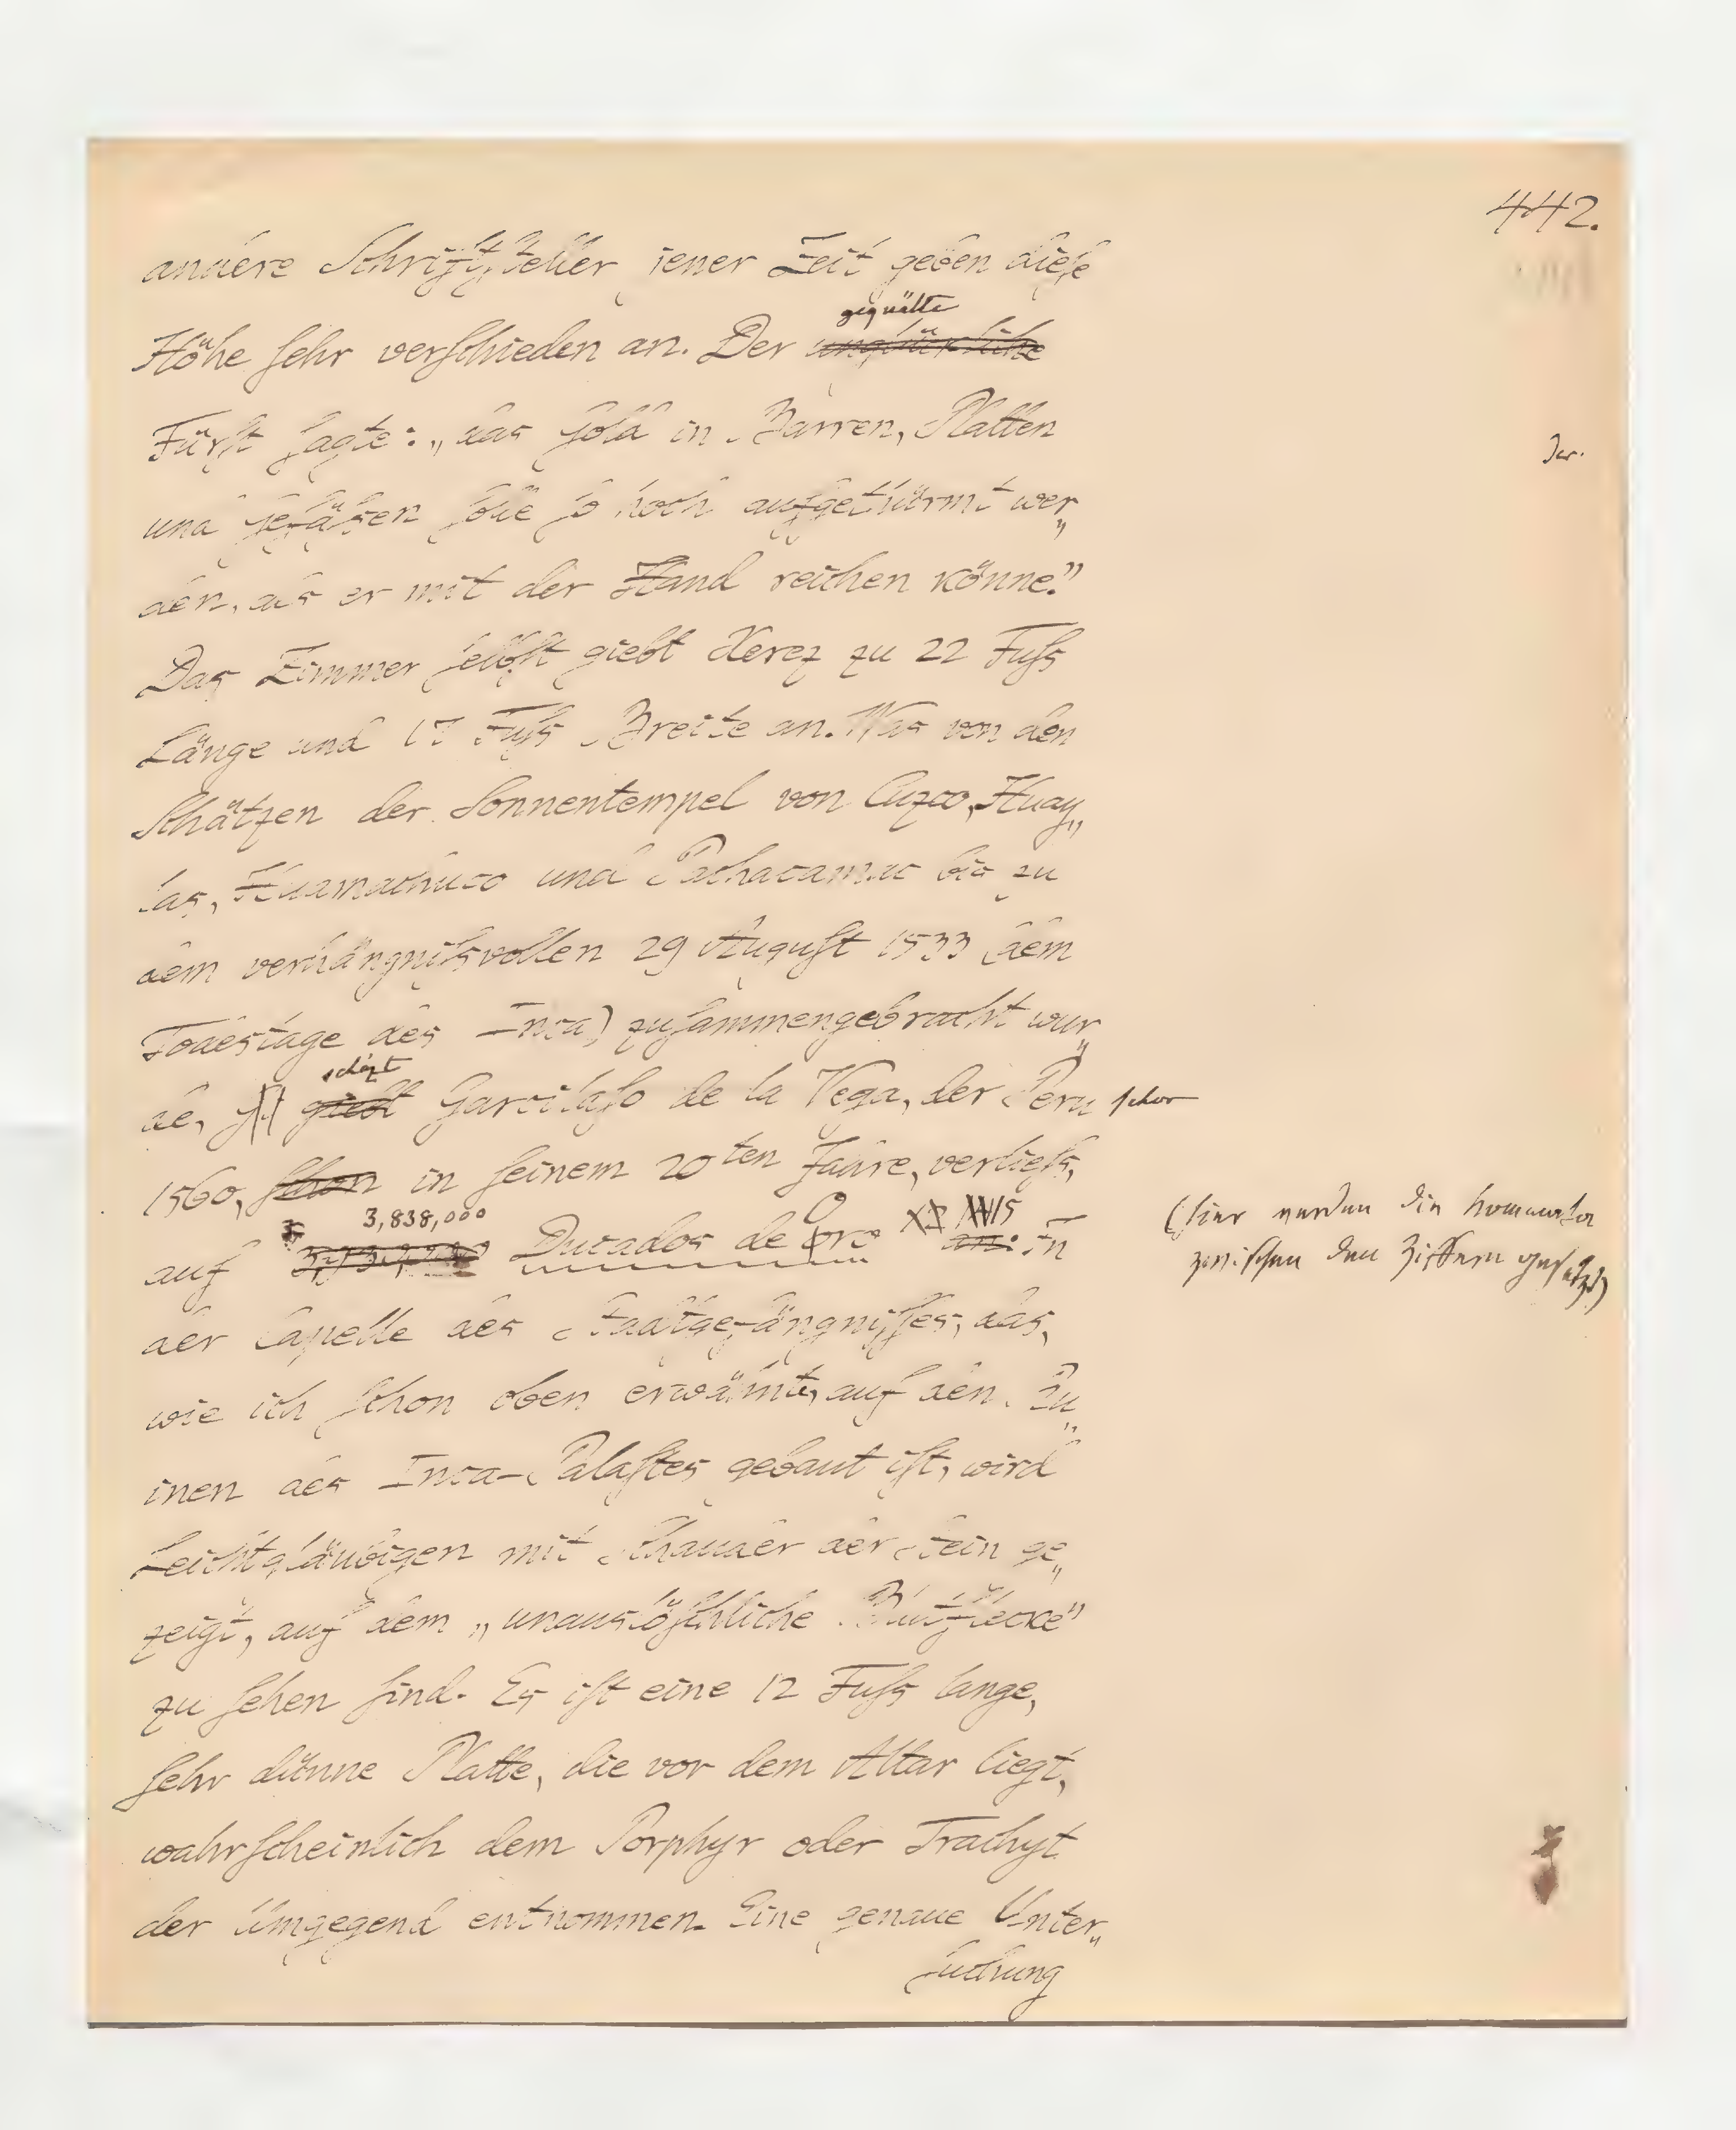 442.
andere Schriftsteller jener Zeit geben diese
gequälte
Höhe sehr verschieden an. Der unglückliche
Fürst sagte: „das Gold in Barren, Platten
und Gefäßen solle so hoch aufgethürmt wer„
den, als er mit der Hand reichen könne."
Das Zimmer selbst giebt Xerez zu 22 Fuß
Länge und 17 Fuß Breite an. Was von den
Schätzen der Sonnentempel von Cuzco, Huay„
las, Huamachuco und Pachacamac bis zu
dem verhängnißvollen 29 August 1533 (dem
Todestage des Inca) zusammengebracht wur„
schäzt
de, giebt Garcilaso de la Vega, der Peru schon
1560, schon in seinem 20ten Jahre, verließ,
3,838,000
auf Ducados de Oro an. In
(hier werden die Kommata
zwischen den Ziffern gesetzt)
der Capelle des Stadtgefängnisses, das,
wie ich schon oben erwähnt, auf den Ru„
inen des Inca-Palastes gebaut ist, wird
Leichtgläubigen mit Schauder der Stein ge„
zeigt, auf dem „unauslöschliche Blutflecke"
zu sehen sind. Es ist eine 12 Fuß lange,
sehr dünne Platte, die vor dem Altar liegt,
wahrscheinlich dem Porphyr oder Trachyt
der Umgegend entnommen. Eine genaue Unter„
suchung